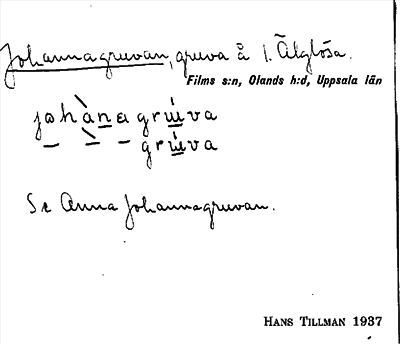 Johannagruvan, gruva å 1. Älglösa.
Films s:n, Olands h:d, Uppsala län
johànagrúva
– – – grúva
Se Anna Johannagruvan.
HANS TILLMAN 1937